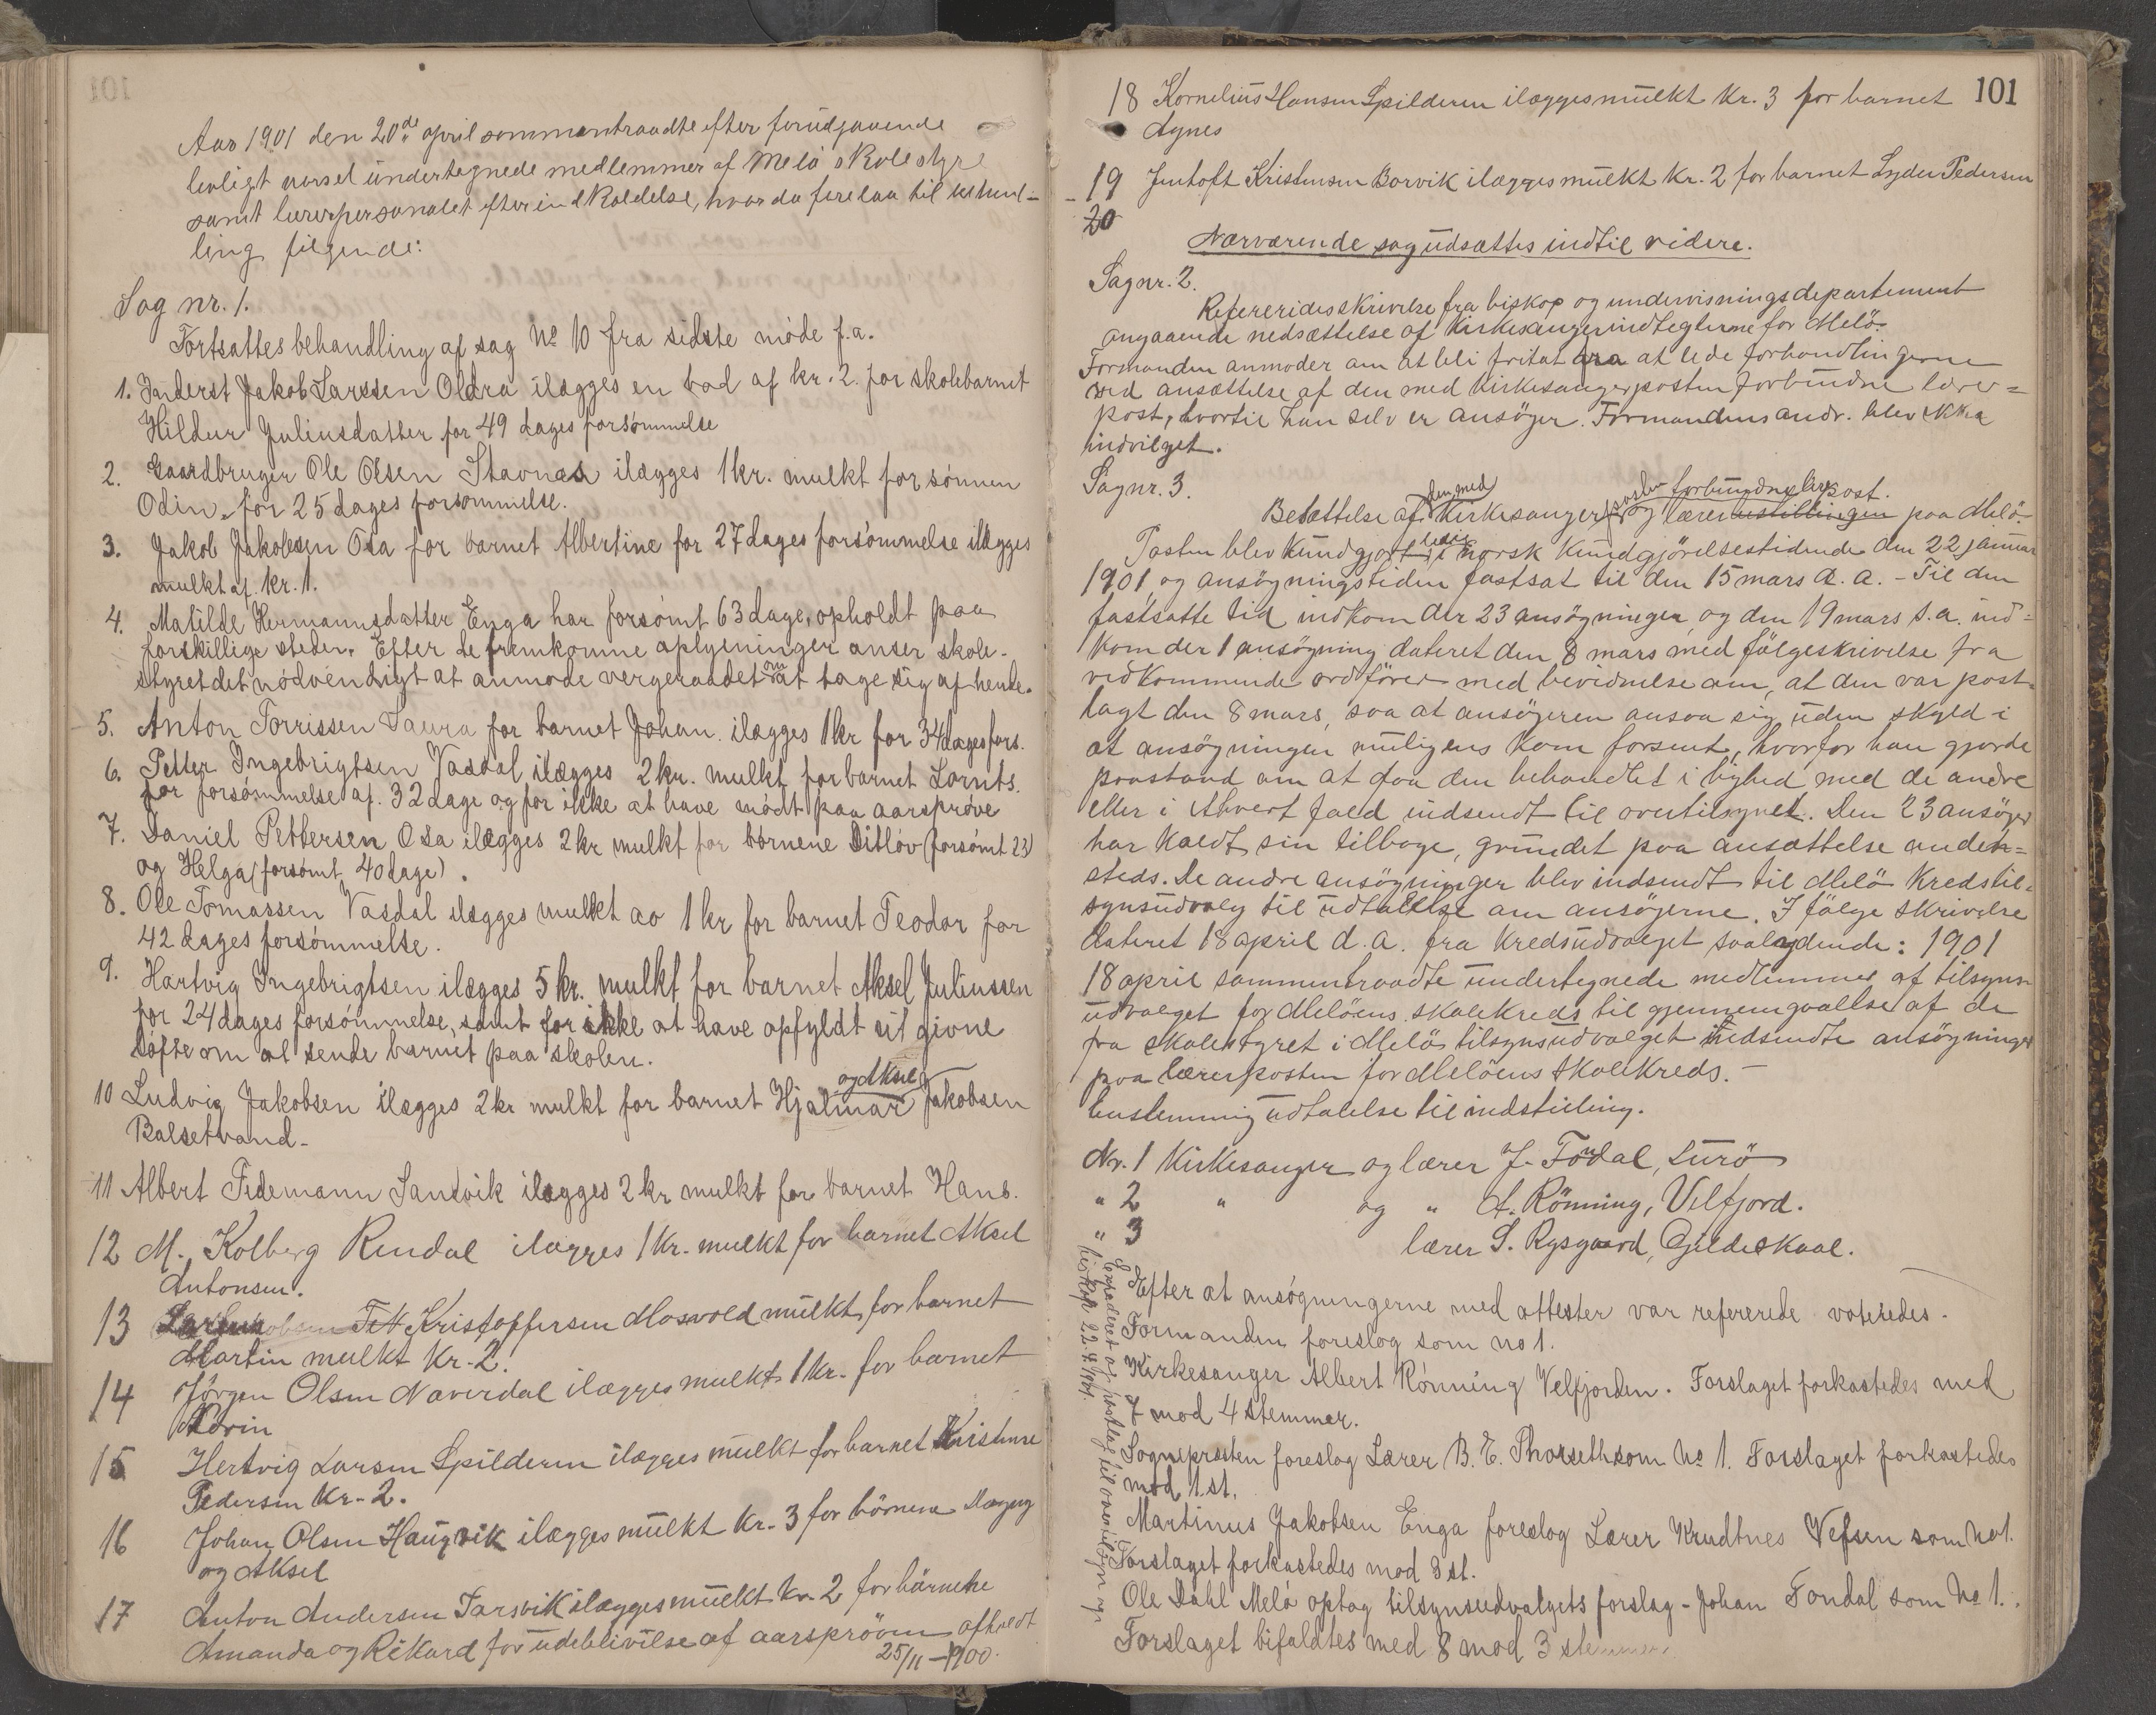 Aar 1901 den 20de april sammentraadte efter forudgaaende
lovligt varsel undertegnede medlemmer af Melø skolestyre
samt lærerpersonalet efter indkaldelse, hvor da forelaa til behand-
ling følgende:
Sag nr. 1.
Fortsattes behandling af sag № 10 fra sidste møde f.a.
1. Inderst Jakob Larssen Oldra ilægges en bod af kr. 2. for skolebarnet
Hildur Juliusdatter for 49 dages forsømmelse
2. Gaardbruger Ole Olsen Stavnes ilægges 1 kr. mulkt for sønnen
Odin for 25 dages forsømmelse.
3. Jakob Jakobsen Osa for barnet Albertine for 27 dages forsømmelse ilægges
mulkt af kr. 1.
4. Matilde Hermannsdatter Enga har forsømt 63 dage, opholdt paa
forskillige steder. Efter de fremkomne oplysninger anser skole-
styret det nødvendigt at anmode vergeraadet om at tage sig af hende.
5. Anton Torrissen Saura for barnet Johan ilægges 1 kr for 34 dages fors.
6. Petter Ingebrigtsen Vasdal ilægges 2 kr. mulkt for barnet Lornts.
for forsømmelse af 32 dage og for ikke at have mødt paa aarsprøve
7. Daniel Pettersen Osa ilægges 2 kr mulkt for børnene Ditlov (forsømt 23)
og Helga (forsømt 40 dage).
8. Ole Tomassen Vasdal ilægges mulkt ao 1 kr for barnet Teodor for
42 dages forsømmelse.
9. Hartvig Ingebrigtsen ilægges 5 kr. mulkt for barnet Aksel Juliussen
for 24 dages forsømmelse, samt for ikke at have opfyldt sit givne
løfte om at sende barnet paa skolen.
og Aksel
10 Ludvig Jakobsen ilægges 2 kr mulkt for barnet Hjalmar Jakobsen
Balsetvand-
11 Albert Fedemann Sandvik ilægges 2 kr mulkt for barnet Hans.
12 M. Kolberg Rendal ilægges 1 Kr. mulkt for barnet Aksel
Antonsen.
13 Kristoffersen Mosvold mulkt for barnet
Martin mulkt Kr. 2.
14 Jørgen Olsen Naverdal ilægges mulkt 1 Kr. for barnet
15 Hertvig Larsen Spilderen ilægges mulkt for barnet Kristense
Pedersen Kr. 2.
16 Johan Olsen Haugvik ilægges mulkt Kr. 3 for börnene Dagny
og Aksel
17 Anton Andersen Tarsvik ilægges mulkt kr 2 for börnene
Amanda og Rikard for udeblivelse af aarspröven afholdt
25/11 - 1900.
101
18 Kornelius Hansen Spilderen ilægges mulkt Kr. 3 for barnet
Agnes
19 Jentoft Kristensen Borvik ilægges mulkt Kr. 2 for barnet Lyder Pedersen
20
Nærværende sag udsættes indtil videre.
Sag nr. 2.
Refereredes skrivelse fra biskop og undervisningsdepartement
angaaende nedsættelse af Kirkesangerindtegterne for Melö.
Formanden anmoder om at bli fritat fra at lede forhandlingerne
ved ansættelse af den med Kirkesangerposten forbundne lærer=
post, hvortil han selv er ansöger. Formandens andr. blev ikke
indvilget.
Sag nr. 3.
den med posten forbundne lærerpost.
Besættelse af Kirkesanger og lærerstillingen paa Melö.
ledig
Posten blev Kundgjort i norsk Kundgjörelsestidende den 22 januar
1901, og ansögningstiden fastsat til den 15 mars d. a. - Til den
fastsatte tid indkom der 23 ansögninger, og den 19 mars s.a. ind=
kom der 1 ansögning dateret den 8 mars med fölgeskrivelse fra
vedkommende ordförer med bevidnelse om, at den var post-
lagt den 8 mars, saa at ansögeren ansaa sig uden skyld i
at ansögningen muligens kom forsent, hvorfor han gjorde
paastand om at faa den behandlet i lighed med de andre
eller i ethvert fald indsendt til overtilsynet. Den 23 ansöger
har kaldt sin tilbage, grundet paa ansættelse anden=
steds. De andre ansögninger blev indsendt til Melö Kredstil-
synsudvalg til udtalelse om ansögerne. I fölge skrivelse
dateret 18 april d.a. fra Kredsudvalget saalydende: 1901
18 april sammentraadte undertegnede medlemmer af tilsyns-
udvalget for Melöens skolekreds til gjennemgaaelse af de
fra skolestyret i Melö tilsynsudvalget tilsendte ansögninger
paa lærerposten for Melöens Skolekreds. -
Enstemmig udtalelse til indstilling.
Nr. 1 Kirkesanger og lærer J. Fondal, Lurö
" 2 " og " A. Rönning, Velfjord.
" 3 lærer S. Rysgaard, Gildeskaal.
Efter at ansøgningerne med attester var refererede voteredes.
Formanden foreslog som no 1.
Kirkesanger Albert Rønning Velfjorden. Forslaget forkastedes med
7 mod 4 stemmer.
Sognepresten foreslog Lærer B. E. Thorseth som № 1. Forslaget forkastedes
mod 1 st.
Martinus Jakobsen Enga foreslog Lærer Krudtnes Vefsen som no 1.
Forslaget forkastedes mod 3 st.
Ole Dahl Melø optog tilsynsudvalgets forslag - Johan Fondal som № 1.
Forslaget bifaldtes med 8 mod 3 stemmer.
Expederet og postlagt til overtilsyn og
biskop 22.4.1901.